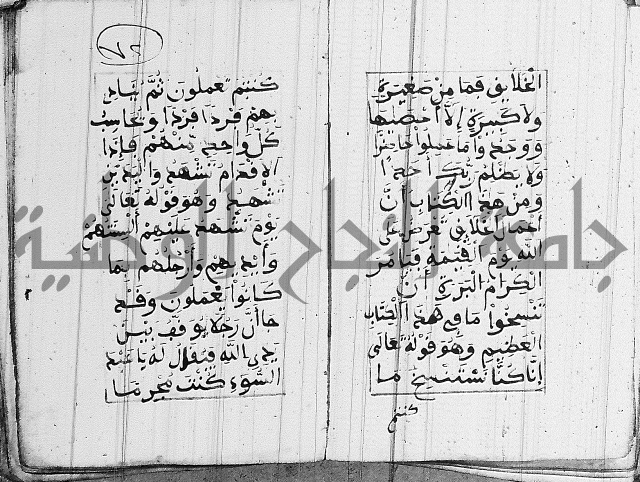 الخلايق فما من صغيرة
ولا كبيرة إلا أحصيها
ووجدوا ما عملوا حاضرا
ولا يظلم ربك أحدا
ومن هذا الكتاب أن
أعمال الخلايق تعرض على
الله يوم القيمة فيامر
الكرام البررة أن
ننسخوا ما في هذا الكتاب
العظيم وهو قوله تعالى
إنا كنا نستنسخ ما
كنتم
٧٢
كنتم تعملون ثم ينادى
بهم فردا فردا ويحاسب
كل واحد منهم فإذا
الأقدام تشهد واليدين
تشهد وهو قوله تعالى
يوم تشهد عليهم ألسنتهم
وأيديهم وأرجلهم بما
كانوا يعملون وقد
حال رجلا يوقف بين
يدي الله فيقال له يا عبد
السوء كنت مجرما
جامعة النجاح الوطنية